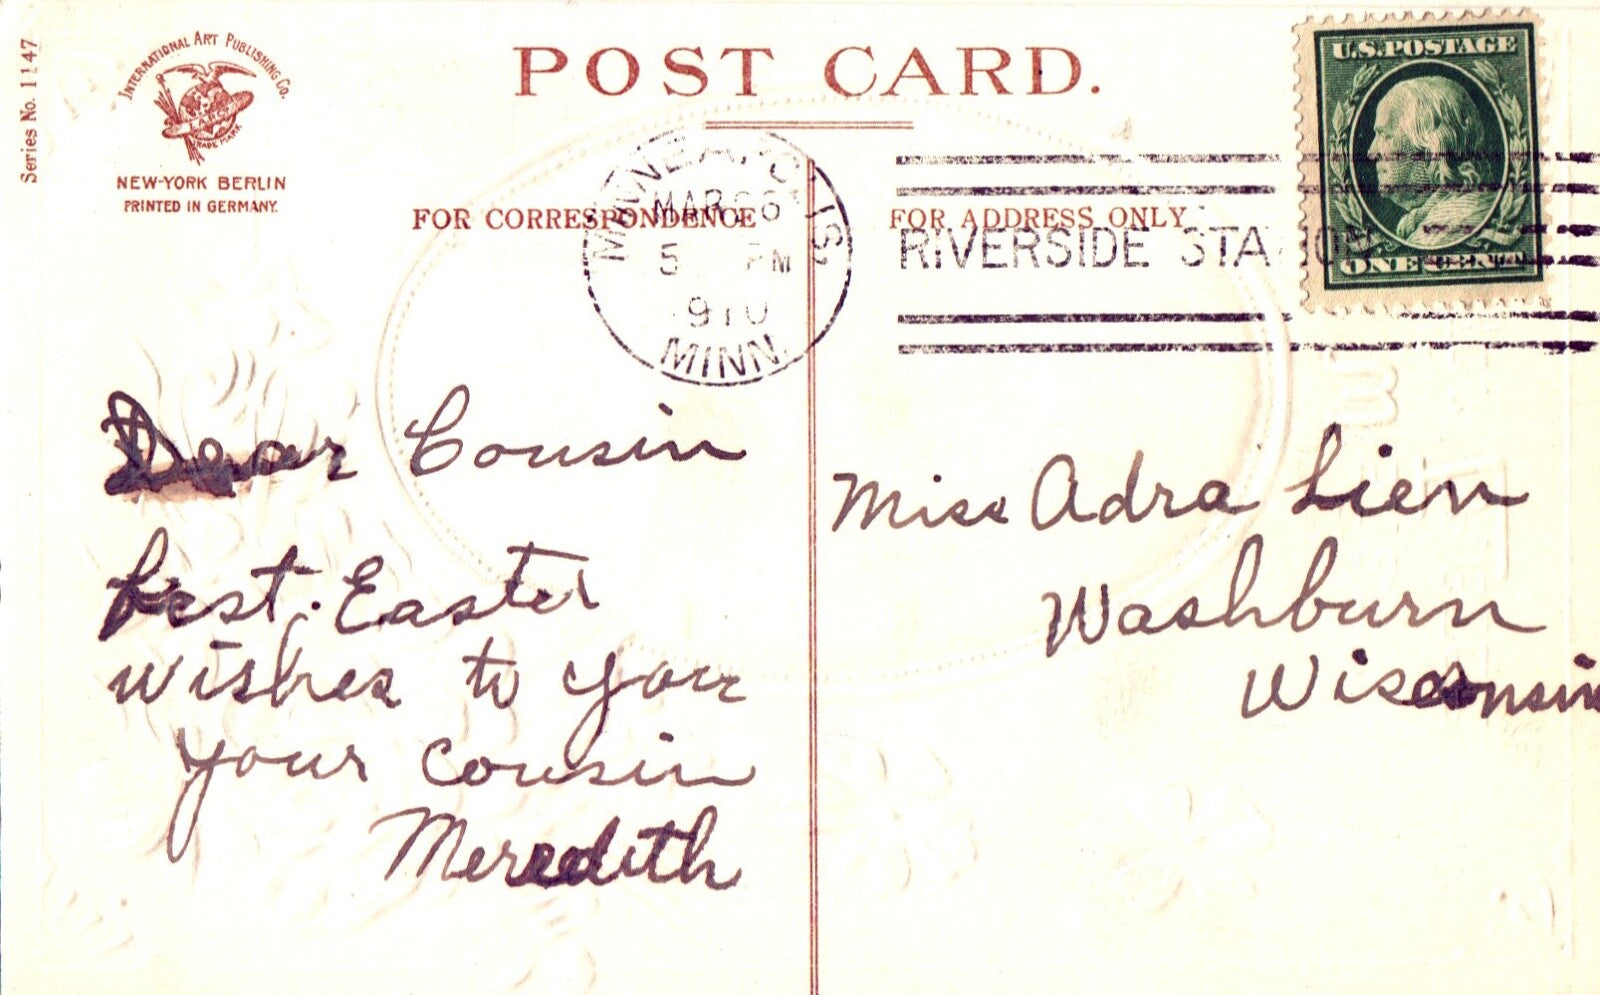 Series No. 1147
INTERNATIONAL ART PUBLISHING CO.
TRADE MARK
NEW-YORK BERLIN
PRINTED IN GERMANY.
POST CARD.
FOR CORRESPONDENCE
FOR ADDRESS ONLY
MINNEAPOLIS,
MAR 26
5 PM
1910
MINN.
RIVERSIDE STATION
U.S. POSTAGE
ONE CENT
Dear Cousin
best Easter
wishes to you
your cousin
Meredith
Miss Adra Lien
Washburn
Wisconsin